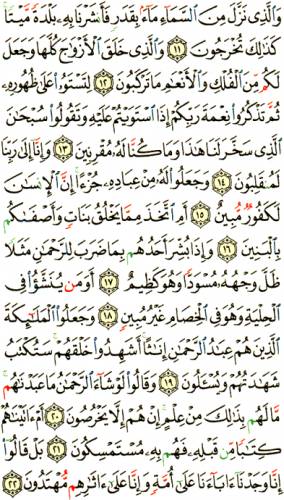 وَٱلَّذِى نَزَّلَ مِنَ ٱلسَّمَآءِ مَآءًۢ بِقَدَرٍ فَأَنشَرْنَا بِهِۦ بَلْدَةً مَّيْتًا
كَذَٰلِكَ تُخْرَجُونَ ١١ وَٱلَّذِى خَلَقَ ٱلْأَزْوَٰجَ كُلَّهَا وَجَعَلَ
لَكُم مِّنَ ٱلْفُلْكِ وَٱلْأَنْعَٰمِ مَا تَرْكَبُونَ ١٢ لِتَسْتَوُۥا۟ عَلَىٰ ظُهُورِهِۦ
ثُمَّ تَذْكُرُوا۟ نِعْمَةَ رَبِّكُمْ إِذَا ٱسْتَوَيْتُمْ عَلَيْهِ وَتَقُولُوا۟ سُبْحَٰنَ
ٱلَّذِى سَخَّرَ لَنَا هَٰذَا وَمَا كُنَّا لَهُۥ مُقْرِنِينَ ١٣ وَإِنَّآ إِلَىٰ رَبِّنَا
لَمُنقَلِبُونَ ١٤ وَجَعَلُوا۟ لَهُۥ مِنْ عِبَادِهِۦ جُزْءًا إِنَّ ٱلْإِنسَٰنَ
لَكَفُورٌ مُّبِينٌ ١٥ أَمِ ٱتَّخَذَ مِمَّا يَخْلُقُ بَنَاتٍ وَأَصْفَىٰكُم
بِٱلْبَنِينَ ١٦ وَإِذَا بُشِّرَ أَحَدُهُم بِمَا ضَرَبَ لِلرَّحْمَٰنِ مَثَلًا
ظَلَّ وَجْهُهُۥ مُسْوَدًّا وَهُوَ كَظِيمٌ ١٧ أَوَمَن يُنَشَّؤُا۟ فِى
ٱلْحِلْيَةِ وَهُوَ فِى ٱلْخِصَامِ غَيْرُ مُبِينٍ ١٨ وَجَعَلُوا۟ ٱلْمَلَٰٓئِكَةَ
ٱلَّذِينَ هُمْ عِبَٰدُ ٱلرَّحْمَٰنِ إِنَٰثًا أَشَهِدُوا۟ خَلْقَهُمْ سَتُكْتَبُ
شَهَٰدَتُهُمْ وَيُسْـَٔلُونَ ١٩ وَقَالُوا۟ لَوْ شَآءَ ٱلرَّحْمَٰنُ مَا عَبَدْنَٰهُم
مَّا لَهُم بِذَٰلِكَ مِنْ عِلْمٍ إِنْ هُمْ إِلَّا يَخْرُصُونَ ٢٠ أَمْ ءَاتَيْنَٰهُمْ
كِتَٰبًا مِّن قَبْلِهِۦ فَهُم بِهِۦ مُسْتَمْسِكُونَ ٢١ بَلْ قَالُوٓا۟
إِنَّا وَجَدْنَآ ءَابَآءَنَا عَلَىٰٓ أُمَّةٍ وَإِنَّا عَلَىٰٓ ءَاثَٰرِهِم مُّهْتَدُونَ ٢٢